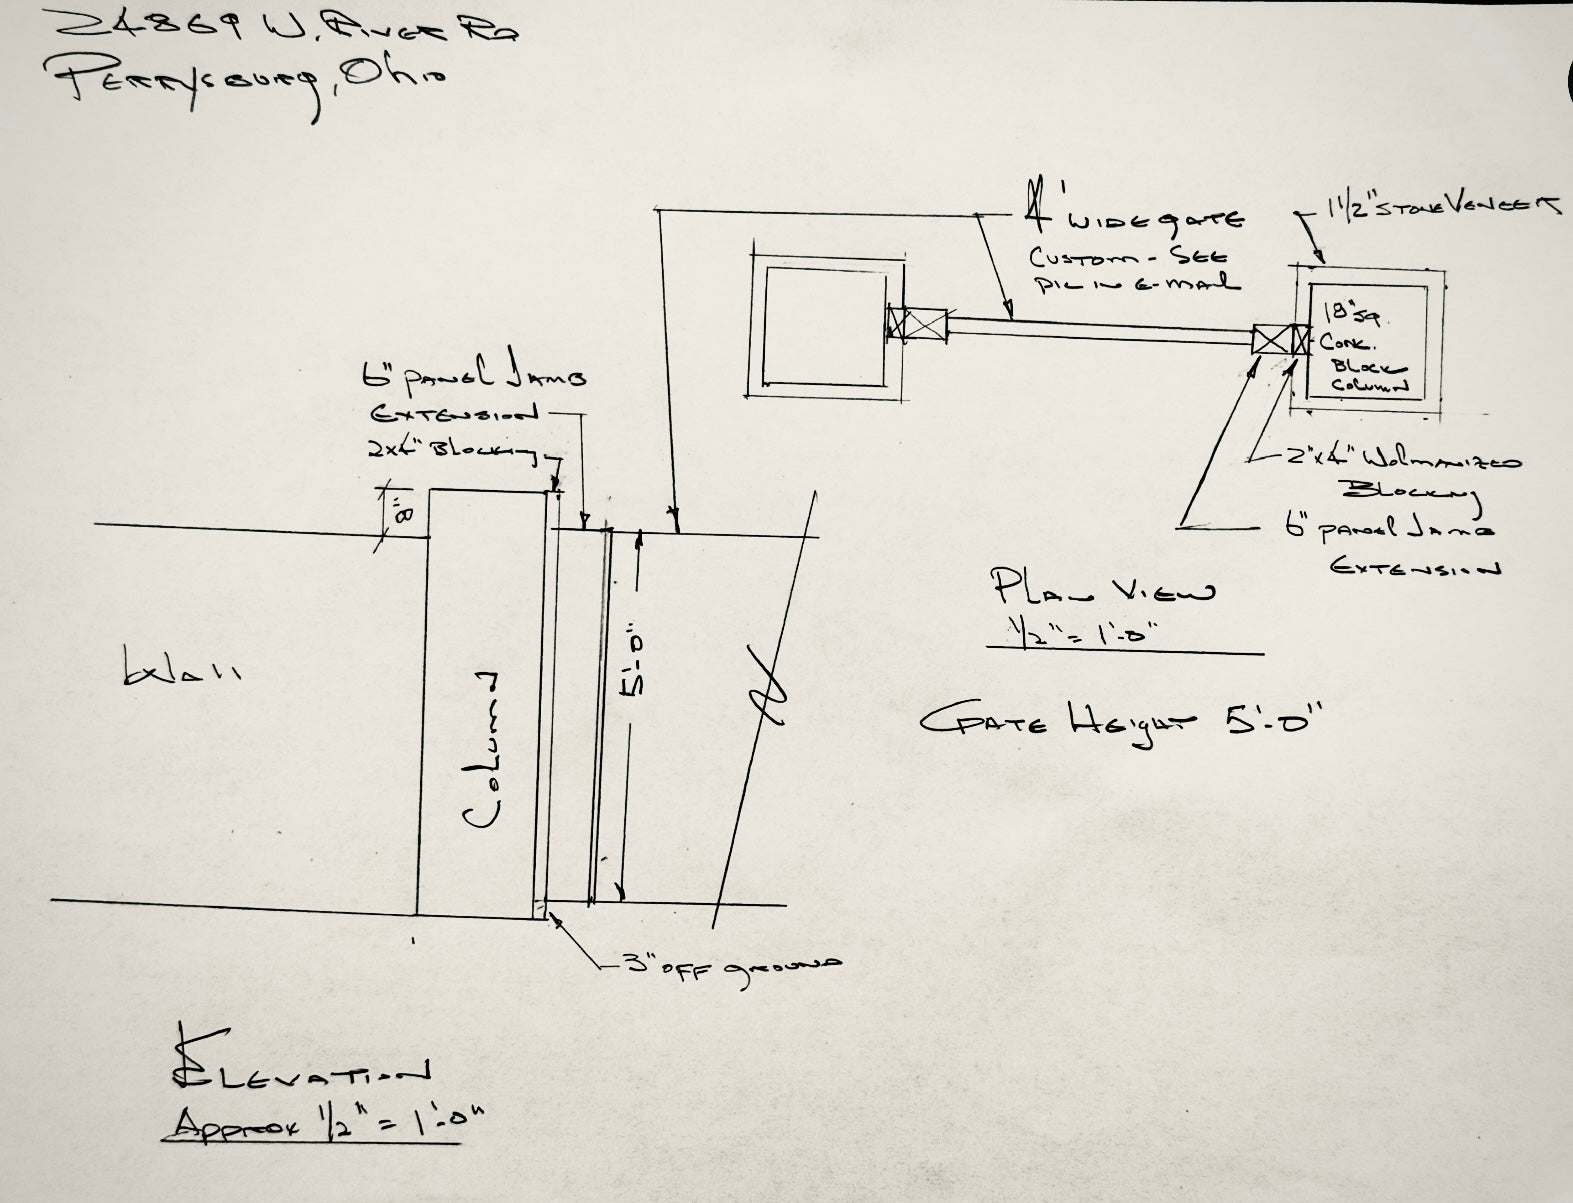 24869 W. River Rd
Perrysburg, Ohio
4' wide gate
Custom - See
pic in e-mail
1 1/2" Stone Veneer
18" sq.
Conc.
Block
Column
6" panel Jamb
Extension
2x4" Blocking
8"
2"x4" Wolmanized
Blocking
6" panel Jamb
Extension
Plan View
1/2" = 1'-0"
Wall
Column
5'-0"
Gate Height 5'-0"
3" off ground
Elevation
Approx 1/2" = 1'-0"